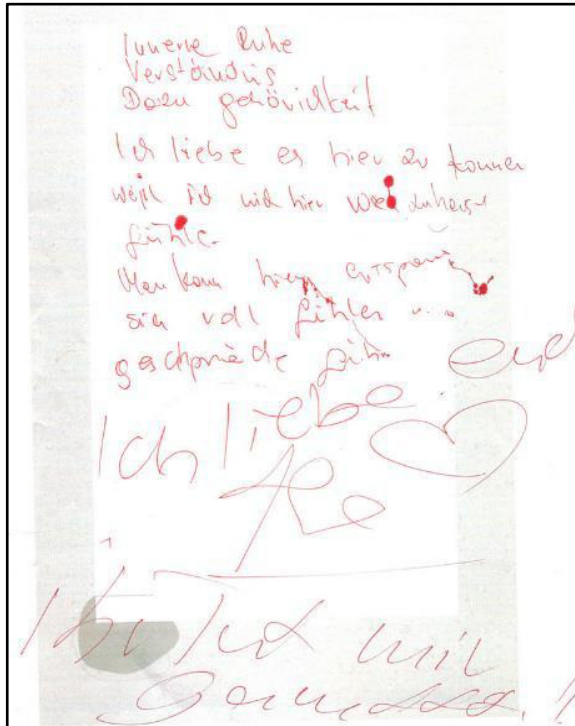 Innere Ruhe
Verständnis
Dazu gehörichkeit
Ich liebe es hier zu kommen
weil ich mich hier wie zuhause
fühle.
Man kann hier entspann
sich voll fühlen
geschpräche führ
Ich liebe euch
Ihr tut mir